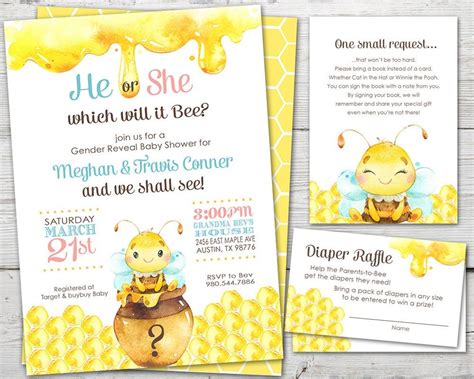 He or She
which will it Bee?
join us for a
Gender Reveal Baby Shower for
Meghan & Travis Conner
and we shall see!
SATURDAY
MARCH
21st
3:00PM
GRANDMA BEV'S
HOUSE
2456 EAST MAPLE AVE
AUSTIN, TX 98776
Registered at
Target & buybuy Baby
RSVP to Bev
980.544.7886
?
One small request...
...that won't be too hard.
Please bring a book instead of a card.
Whether Cat in the Hat or Winnie the Pooh.
You can sign the book with a note from you.
By signing your book, we will
remember and share your special gift
even when you're not there!
Diaper Raffle
Help the Parents-to-Bee
get the diapers they need!
Bring a pack of diapers in any size
to be entered to win a prize!
Name